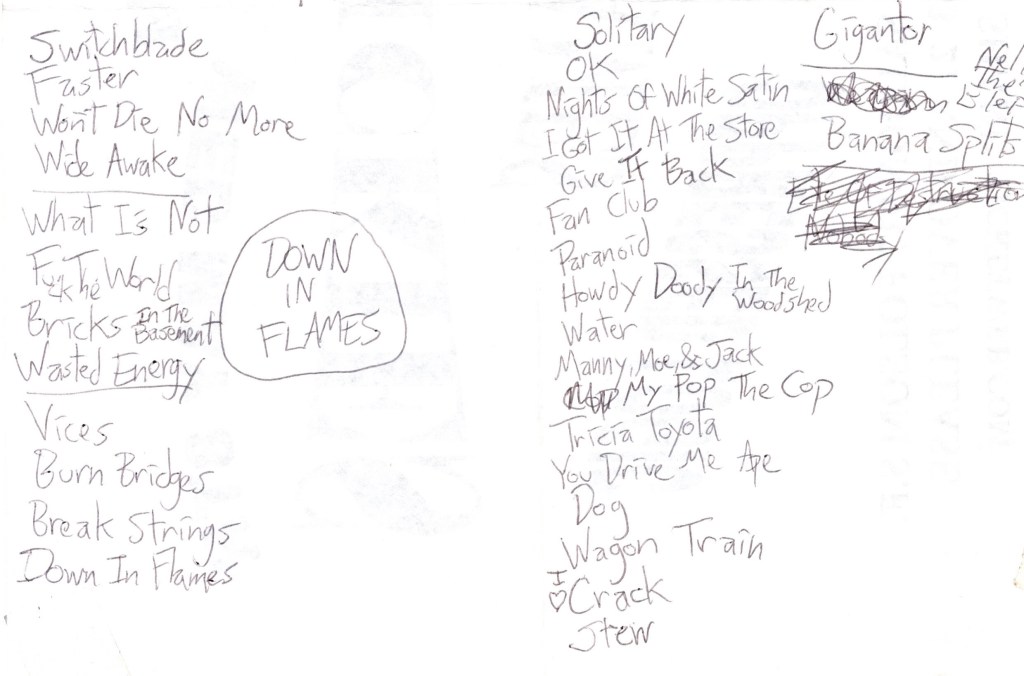 Switchblade
Faster
Won't Die No More
Wide Awake
What Is Not
Fuck The World
Bricks In The Basement
Wasted Energy
Vices
Burn Bridges
Break Strings
Down In Flames
DOWN
IN
FLAMES
Solitary
OK
Nights Of White Satin
I Got It At The Store
Give It Back
Fan Club
Paranoid
Howdy Doody In The Woodshed
Water
Manny, Moe, & Jack
My Pop The Cop
Tricia Toyota
You Drive Me Ape
Dog
Wagon Train
I ♡ Crack
Stew
Gigantor
Nel
The
Elep
Banana Splits